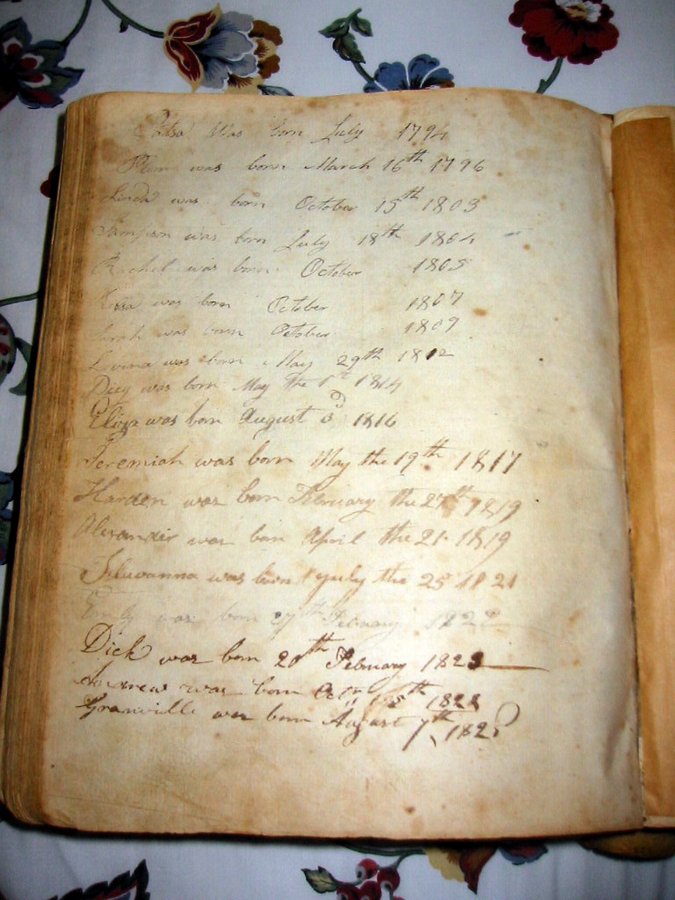 was born July 1794
was born March 16th 1796
Linda was born October 15th 1803
Sampson was born July 18th 1804
Rachel was born October 1805
was born October 1807
Sarah was born October 1809
Lovina was born May 29th 1812
was born May the 1st 1814
Eliza was born August 3d 1816
Jeremiah was born May the 19th 1817
Harden was born February the 27th 1819
Alexander was born April the 21 1819
Fluvanna was born July the 25 1821
Emily was born 27th February 1822
Dick was born 20th February 1823
Andrew was born Octr
Granville was born August 7th